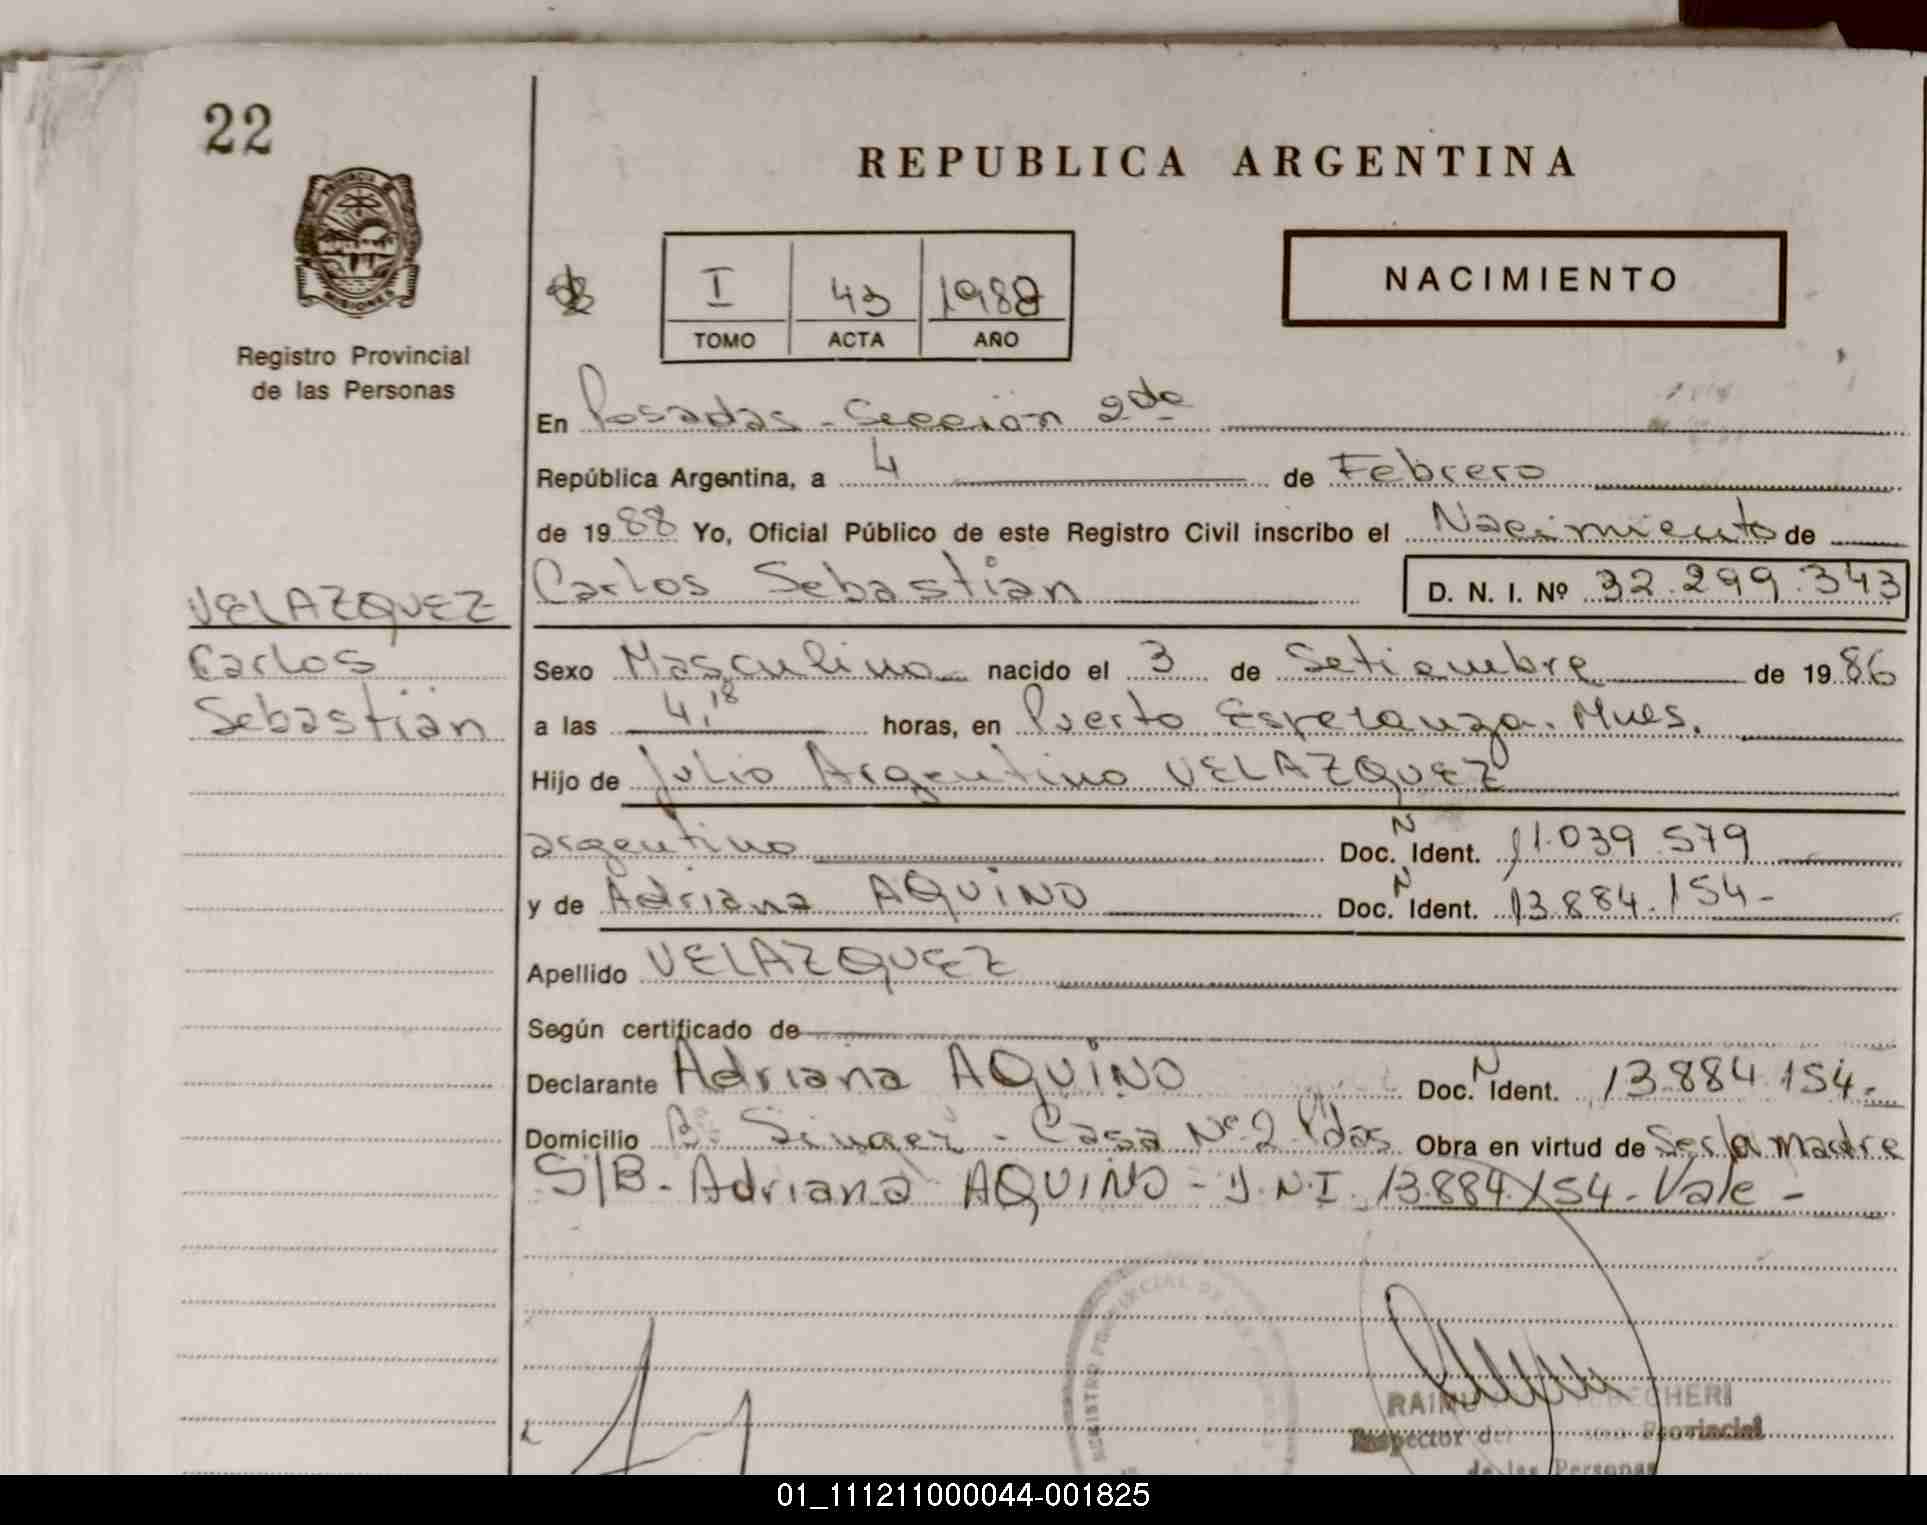 22
REPUBLICA ARGENTINA
PROVINCIA DE
MISIONES
Registro Provincial
de las Personas
I 43 1988
TOMO ACTA AÑO
NACIMIENTO
En Posadas - Sección 2da
República Argentina, a 4 de Febrero
de 1988 Yo, Oficial Público de este Registro Civil inscribo el Nacimiento de
Carlos Sebastian D. N. I. Nº 32.299.343
VELAZQUEZ
Carlos
Sebastian
Sexo Masculino nacido el 3 de Setiembre de 1986
a las 4,18 horas, en Puerto Esperanza. Mnes.
Hijo de Julio Argentino VELAZQUEZ
argentino Doc. N Ident. 11.039.579
y de Adriana AQUINO Doc. N Ident. 13.884.154-
Apellido VELAZQUEZ
Según certificado de
Declarante Adriana AQUINO Doc. N Ident. 13.884.154-
Domicilio Bº - Casa Nº 2 Pdas Obra en virtud de Ser la madre
S/B- Adriana AQUINO - D.N.I. 13.884.154- Vale -
REGISTRO PROVINCIAL DE
Inspector del Provincial
de las Personas
01_111211000044-001825